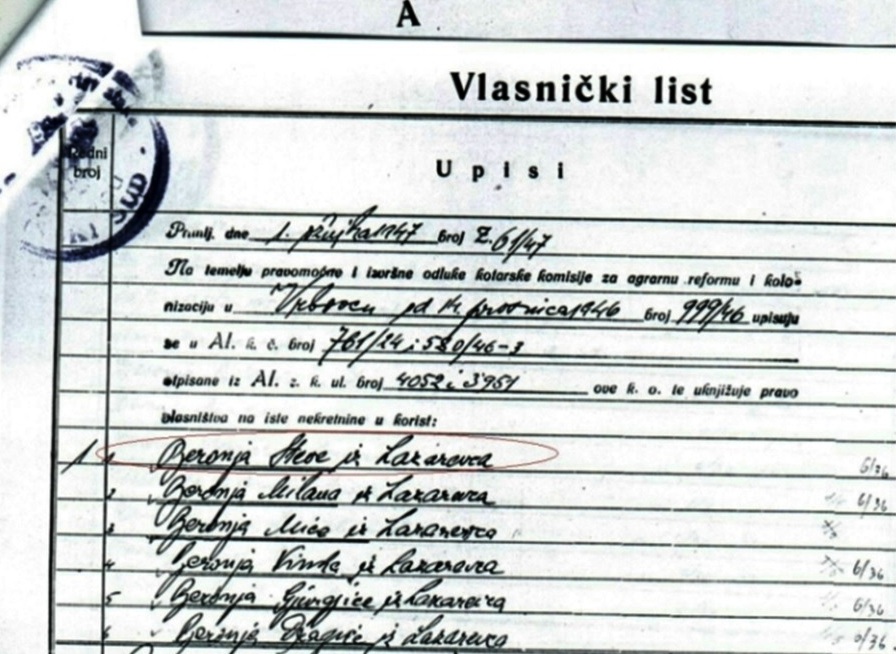 A
Vlasnički list
Redni
broj
Upisi
SUD
Primlj. dne 1. 1947 broj Z. 61/47
Na temelju pravomoćne i izvršne odluke kotarske komisije za agrarnu reformu i kolo-
nizaciju u Vrbovcu od 14. prosinca 1946 broj 999/46 upisuju
se u Al. k. č. broj 761/24 i 580/46-3
otpisane iz Al. z. k. ul. broj 4052 i 3951 ove k. o. te uknjižuje pravo
vlasništva na iste nekretnine u korist:
1 1 Beronja Steve iz Lazarevca 6/36
2 Beronja Milana iz Lazarevca 6/36
3 Beronja Mićo iz Lazarevca
4 Beronja iz Lazarevca 6/36
5 Beronja iz Lazarevca 6/36
6 Beronja Dragića iz Lazarevca 6/36